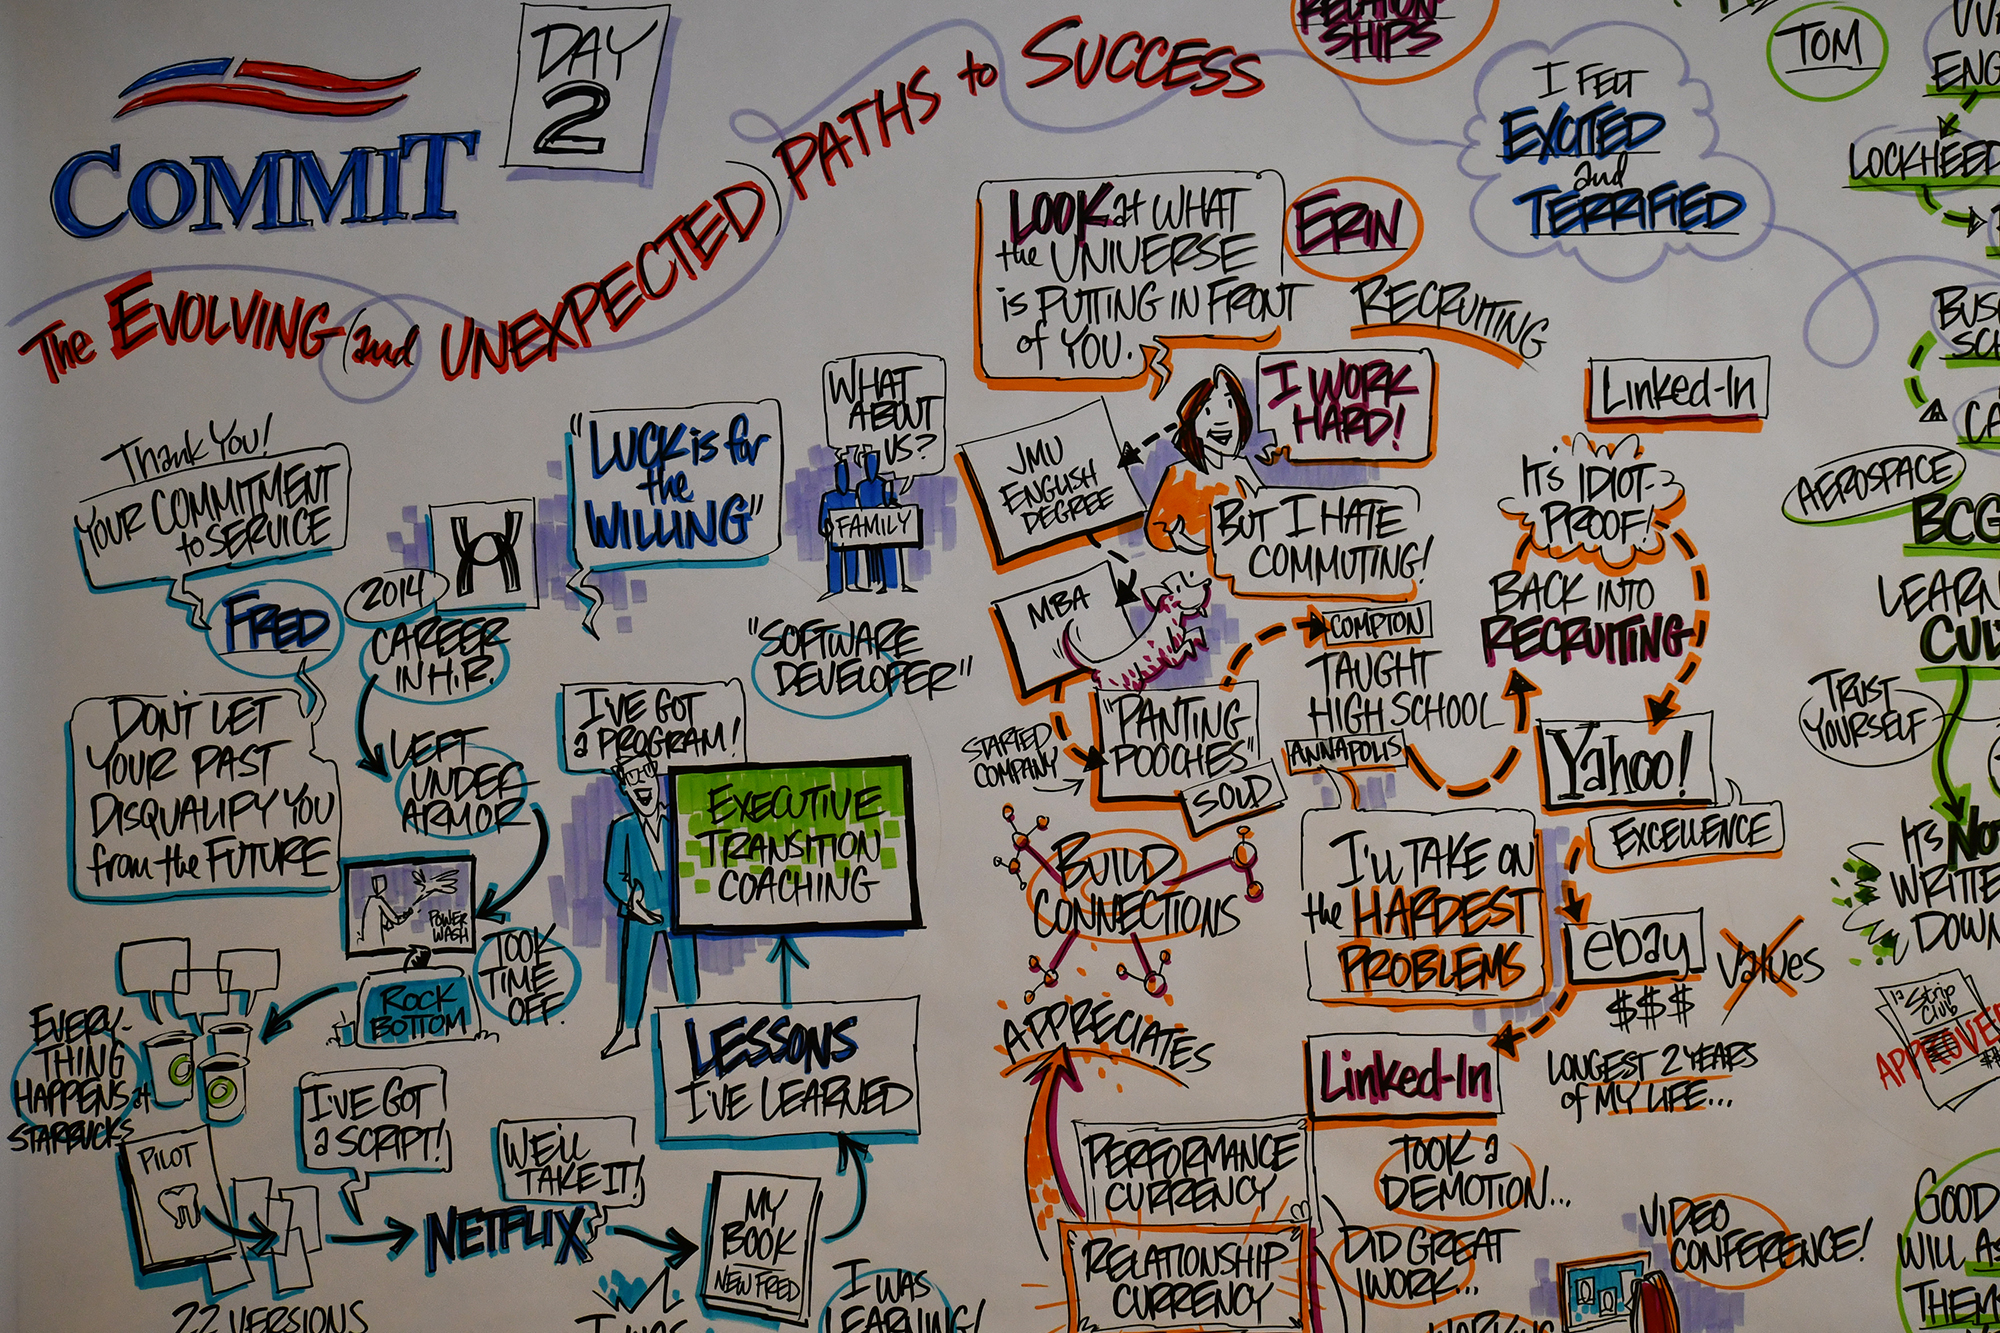 COMMIT
DAY
2
The EVOLVING (and UNEXPECTED) PATHS to SUCCESS
Thank You!
YOUR COMMITMENT
to SERVICE
FRED
DON'T LET
YOUR PAST
DISQUALIFY YOU
from the FUTURE
2014
CAREER
IN H.R.
LEFT
UNDER
ARMOR
POWER
WASH
TOOK
TIME
OFF.
ROCK
BOTTOM
EVERY-
THING
HAPPENS at
STARBUCKS
PILOT
22 VERSIONS
I'VE GOT
a SCRIPT!
NETFLIX
WE'LL
TAKE IT!
I WAS
MY
BOOK
NEW FRED
I WAS
LEARNING!
LESSONS
I'VE LEARNED
EXECUTIVE
TRANSITION
COACHING
I'VE GOT
a PROGRAM!
"LUCK is for
the
WILLING"
WHAT
ABOUT
US?
FAMILY
"SOFTWARE
DEVELOPER"
RELATION-
SHIPS
LOOK at WHAT
the UNIVERSE
is PUTTING IN FRONT
of YOU.
ERIN
RECRUITING
I WORK
HARD!
BUT I HATE
COMMUTING!
JMU
ENGLISH
DEGREE
MBA
STARTED
COMPANY
"PANTING
POOCHES"
SOLD
COMPTON
TAUGHT
HIGH SCHOOL
ANNAPOLIS
BACK INTO
RECRUITING
IT'S IDIOT-
PROOF!
Linked-In
Yahoo!
EXCELLENCE
I'll TAKE ON
the HARDEST
PROBLEMS
ebay
Values
$$$
LONGEST 2 YEARS
of MY LIFE...
Linked-In
TOOK a
DEMOTION...
DID GREAT
WORK...
WORKING
VIDEO
CONFERENCE!
BUILD
CONNECTIONS
APPRECIATES
PERFORMANCE
CURRENCY
RELATIONSHIP
CURRENCY
I FELT
EXCITED
and
TERRIFIED
TOM
ENG
LOCKHEED
BUS
SC
CA
AEROSPACE
BCG
LEARN
CUL
TRUST
YOURSELF
IT'S NOT
WRITTE
DOWN
Strip
Club
APPROVE
GOOD
WILL AS
THEM